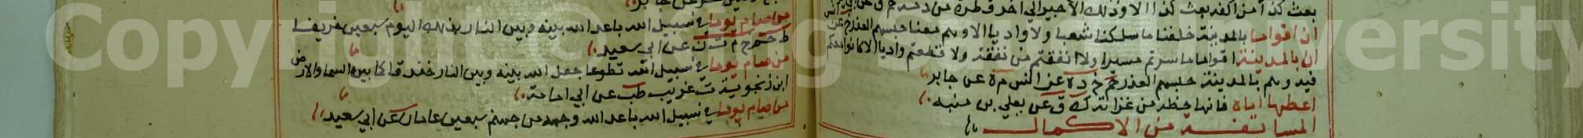 بعث كذا من اكفه بعث كذا الا وذلك الاجير الى اخر قطرة من دمه حم
ان اقواما بالمدينة خلفنا ما سلكنا شعبا ولا واديا الا وهم معنا حبسهم العذر خ عن
ان بالمدينة اقواما ما سرتم مسيرا ولا انفقتم من نفقة ولا قطعتم واديا الا كانوا معكم
فيه وهم بالمدينة حبسهم العذر حم خ د ه عن انس م ه عن جابر
اعطها اياه فانها حظه من غزاته د ك ق عن يعلى بن منبه
المسابقة من الاكمال
من صام يوما في سبيل الله باعد الله بينه وبين النار بذلك اليوم سبعين خريفا
ط حم خ م ت ن عن ابي سعيد
من صام يوما في سبيل الله تطوعا جعل الله بينه وبين النار خندقا كما بين السماء والارض
ابن زنجوية ت غريب طب عن ابي امامة
من صام يوما في سبيل الله باعد الله وجهه من جهنم سبعين عاما ن عن ابي سعيد
Copyright © King University